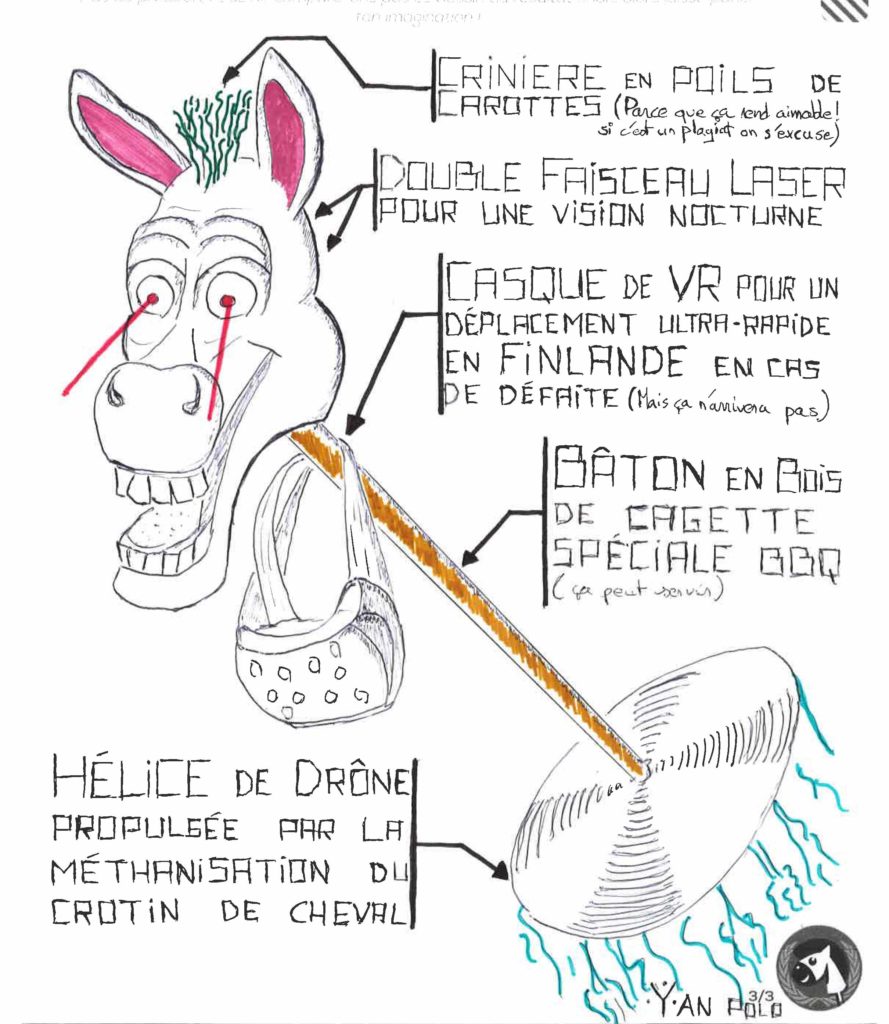 ton imagination !
CRINIERE EN POILS DE
CAROTTES (Parce que ça rend aimable!
si c'est un plagiat on s'excuse)
DOUBLE FAISCEAU LASER
POUR UNE VISION NOCTURNE
CASQUE DE VR POUR UN
DÉPLACEMENT ULTRA-RAPIDE
EN FINLANDE EN CAS
DE DÉFAITE (Mais ça n'arrivera pas)
BÂTON EN BOIS
DE CAGETTE
SPÉCIALE BBQ
(ça peut servir)
HÉLICE DE DRÔNE
PROPULSÉE PAR LA
MÉTHANISATION DU
CROTIN DE CHEVAL
3/3
Y.AN POLO